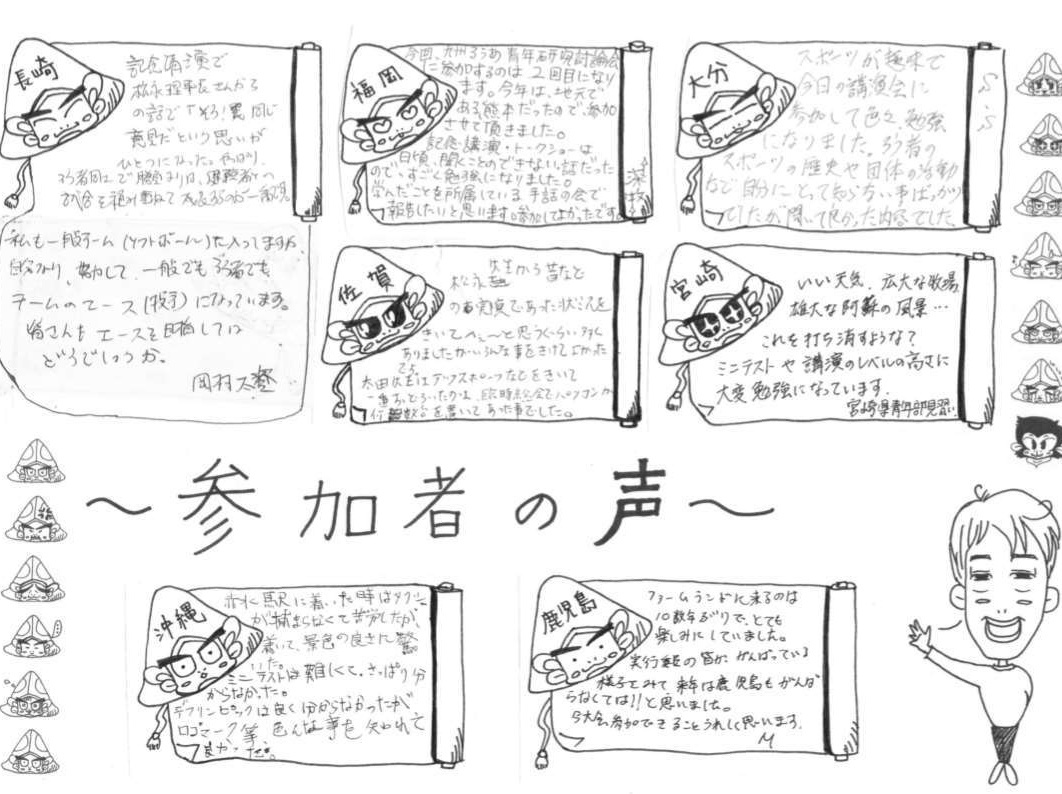 長崎
記念講演で
松永理事長さんから
の話で「そう!賛同し
意見だという思いが
ひとつになった。やはり、
私も一般チーム(ソフトボール)に入ってますが、
一般でもろう者でも
チームのエース(投手)になっています。
皆さんも エースを目指しては
どうでしょうか。
福岡
今回、九州ろうあ青年研究討論会
に参加するのは2回目になり
ます。今年は、地元で
ある熊本だったので、参加
させて頂きました。
記念講演・トークショーは
日頃、聞くことのできない話だった
ので、すごく勉強になりました。
学んだことを所属している手話の会で
報告したいと思います。参加してよかったです。
大分
スポーツが趣味で
今日の講演会に
参加して色々勉強
になりました。ろう者の
スポーツの歴史や団体の活動
など自分にとって知らない事ばっかり
でしたが聞いて良かった内容でした。
S.S
佐賀
先生から昔など
の事実であった状況を
きいてへぇ〜と思うぐらい
ありましたが、いろんな事をきけてよかった
です。
宮崎
いい天気、広大な牧場
雄大な阿蘇の風景…
これを打ち消すような?
ミニテストや講演のレベルの高さに
大変勉強になっています。
宮崎県青年部見習い
〜参加者の声〜
沖縄
赤水駅に着いた時はタクシー
が捕まらなくて苦労したが
着いて、景色の良さに驚
いた。
ミニテストは難しくて、さっぱり分
からなかった。
デフリンピックは良く分からなかったが
ロゴマーク等、色んな事を知れて
良かった。
鹿児島
ファームランドに来るのは
10数年ぶりで、とても
楽しみにしていました。
実行委員の皆が、がんばっている
様子をみて来年は鹿児島もがんば
らなくては!!と思いました。
大会参加できることうれしく思います。
M